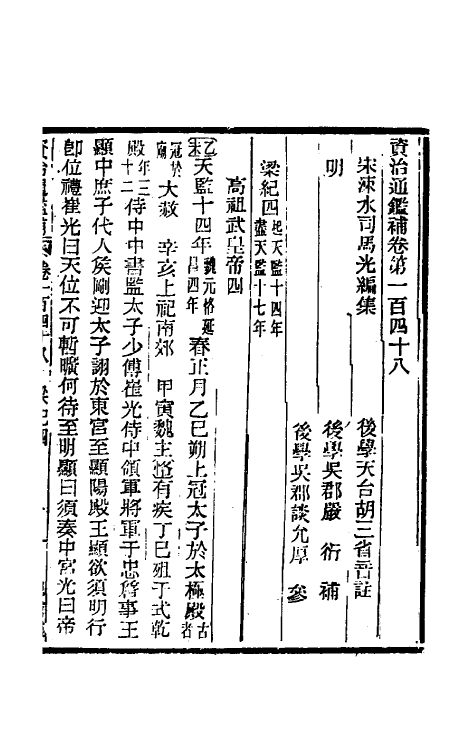 資治通鑑補卷第一百四十八
宋涑水司馬光編集　後學天台胡三省音註
明　後學吳郡嚴　衍　補
後學吳郡談允厚　參
梁紀四起天監十四年盡天監十七年
高祖武皇帝四
乙未天監十四年魏元恪延昌四年春正月乙巳朔上冠太子於太極殿古者
冠於廟大赦　辛亥上祀南郊　甲寅魏主恪有疾丁巳殂于式乾
殿年三十二侍中中書監太子少傅崔光侍中領軍將軍于忠詹事王
顯中庶子代人侯剛迎太子詡於東宮至顯陽殿王顯欲須明行
卽位禮崔光曰天位不可暫曠何待至明顯曰須奏中宮光曰帝